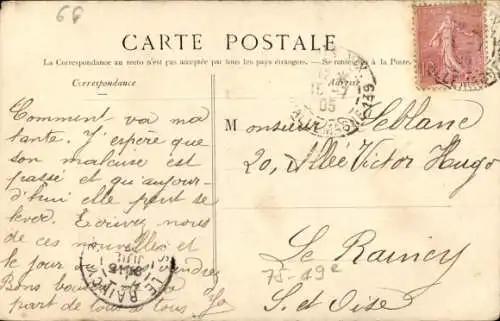 66
CARTE POSTALE
La Correspondance au recto n'est pas acceptée par tous les pays étrangers. — Se renseigner à la Poste.
Correspondance
Comment va ma
tante. J'espère que
son malaise est
passé et qu'aujour-
d'hui elle peut se
lever. Ecrivez nous
de ces nouvelles et
le jour où
Bons
part de tous à tous.
Monsieur Leblanc
20, Allée Victor Hugo
Le Raincy
75-19e
S. et Oise
15-7
05
LE RAINCY